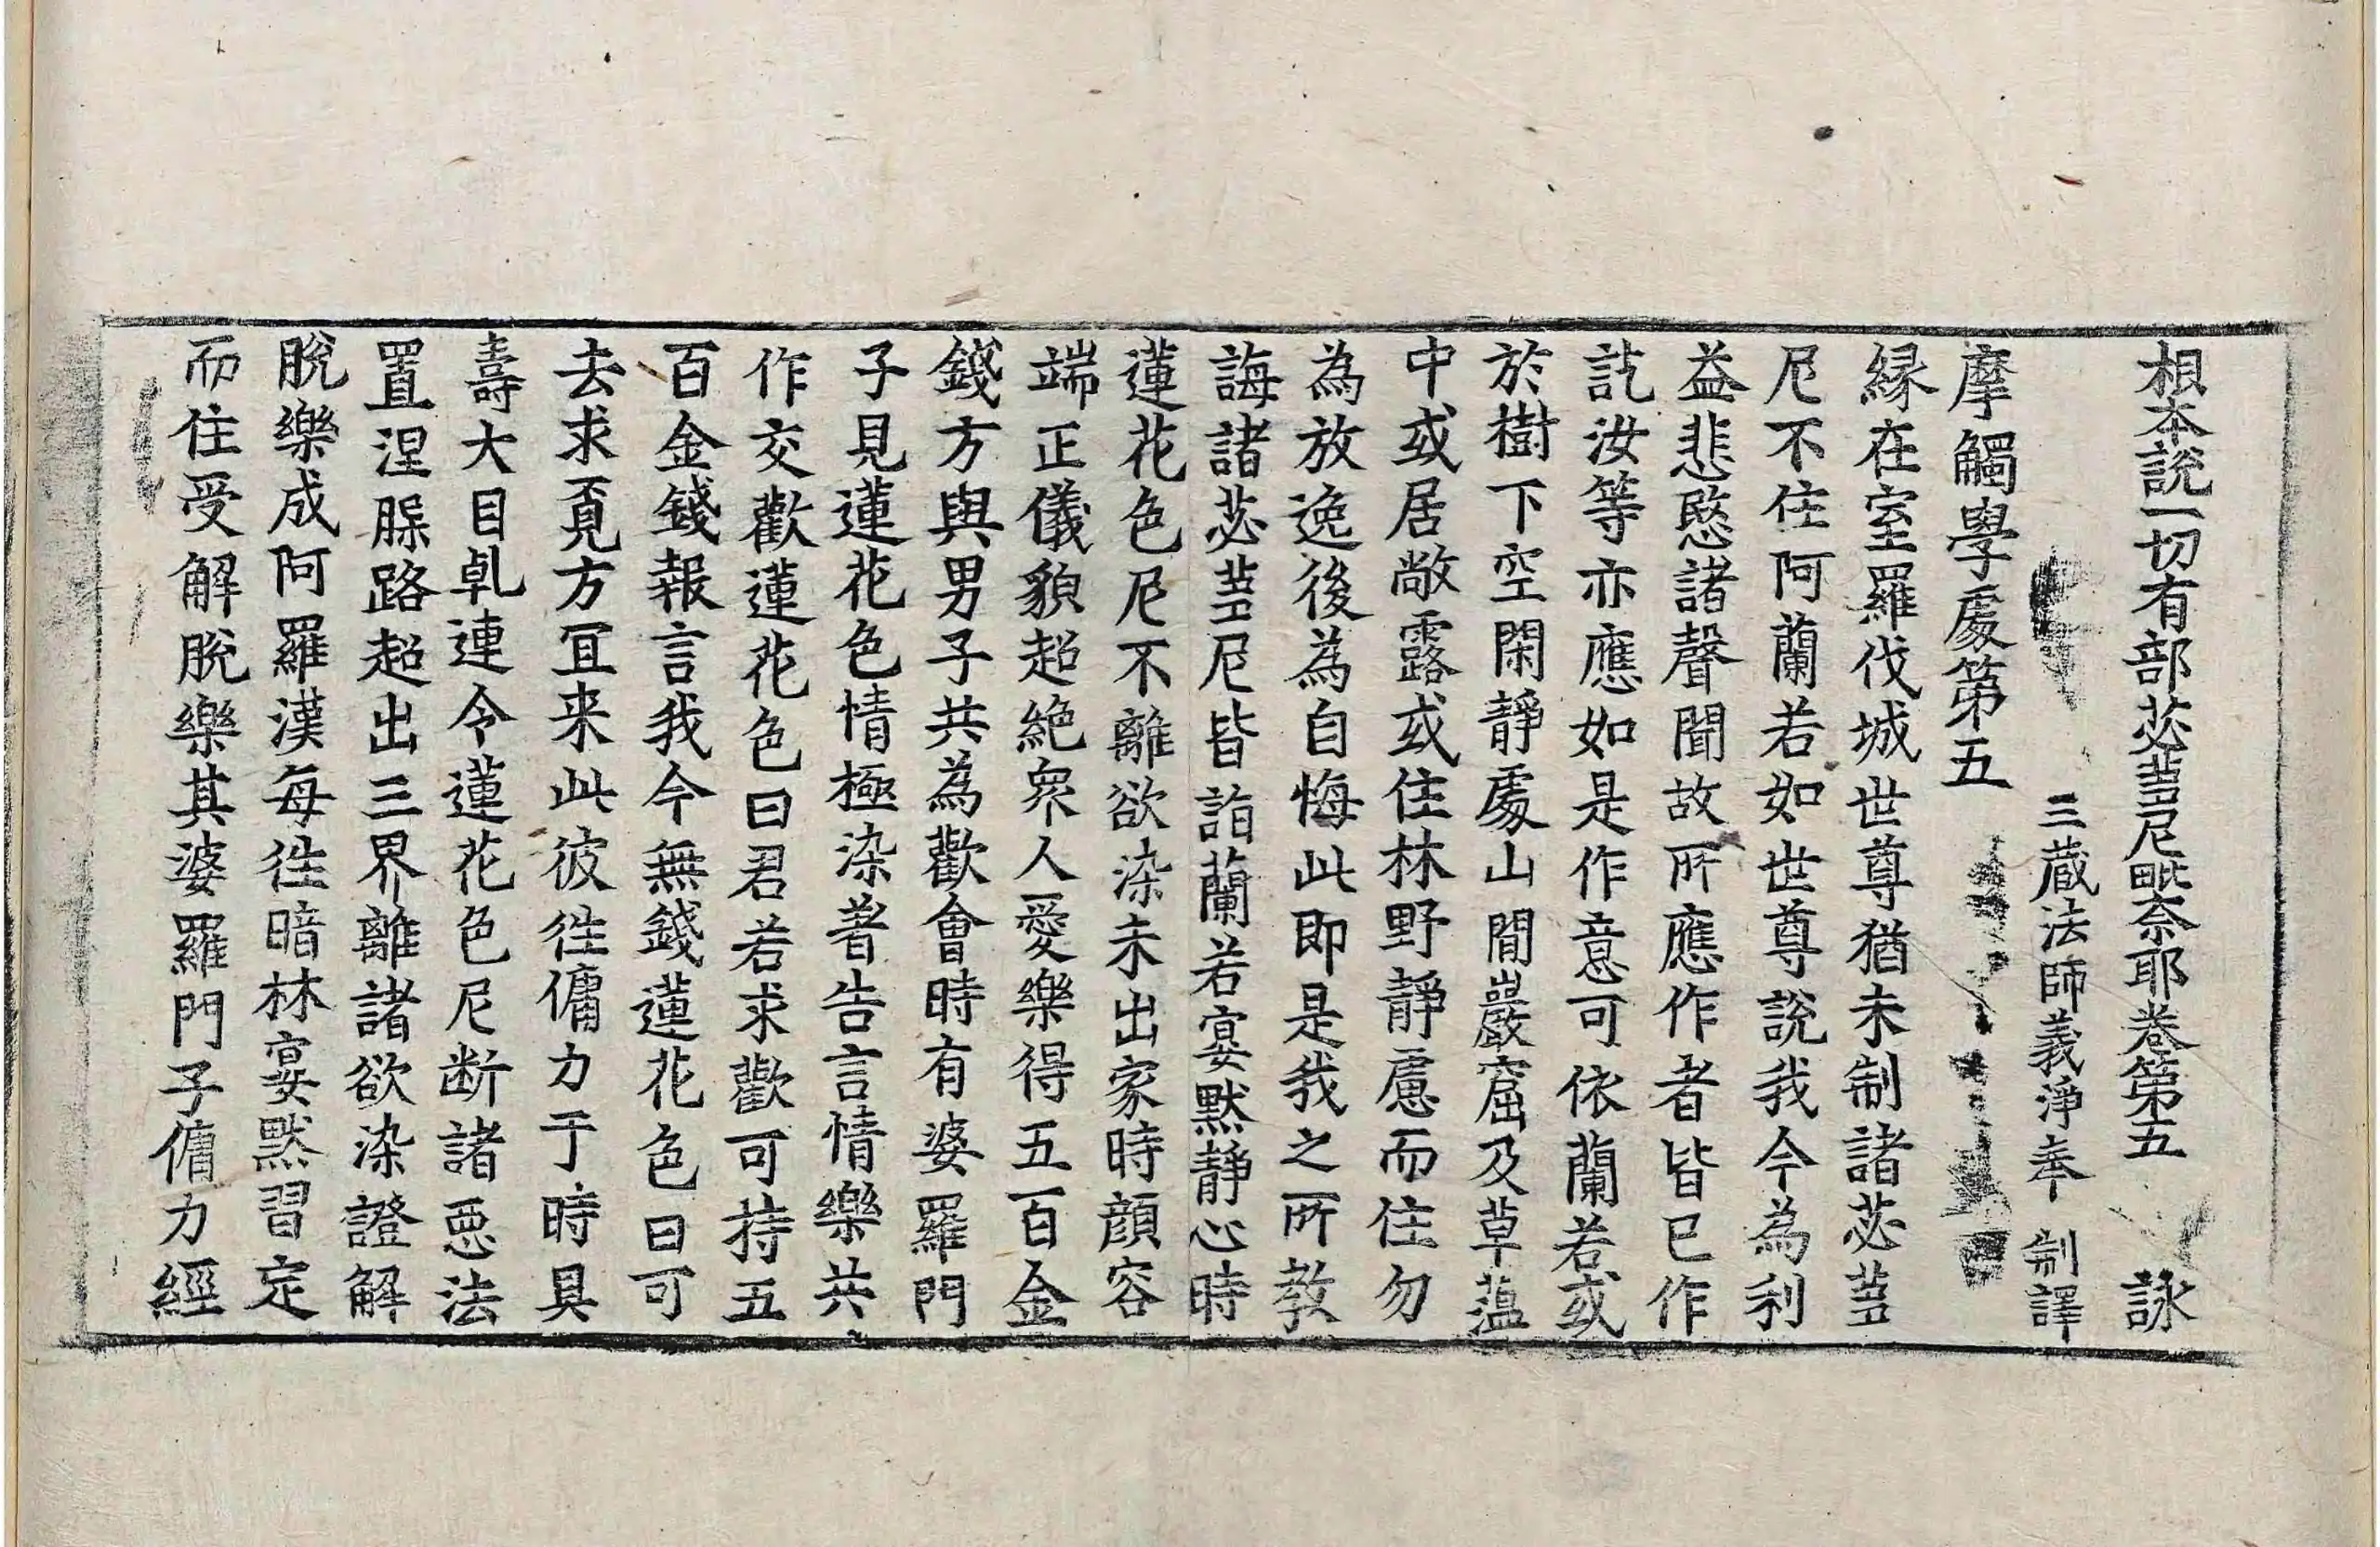 根本說一切有部苾蒭尼毗奈耶卷第五 詠
三藏法師義淨奉 制譯
摩觸學處第五
緣在室羅伐城世尊猶未制諸苾蒭
尼不住阿蘭若如世尊說我今為利
益悲愍諸聲聞故所應作者皆已作
訖汝等亦應如是作意可依蘭若或
於樹下空閑靜處山間巖窟及草蘊
中或居敞露或住林野靜慮而住勿
為放逸後為自悔此即是我之所教
誨諸苾蒭尼皆詣蘭若宴默靜心時
蓮花色尼不離欲染未出家時顏容
端正儀貌超絕衆人愛樂得五百金
錢方與男子共為歡會時有婆羅門
子見蓮花色情極染著告言情樂共
作交歡蓮花色曰君若求歡可持五
百金錢報言我今無錢蓮花色曰可
去求覓方冝来此彼往傭力于時具
壽大目乹連令蓮花色尼断諸惡法
置涅槃路超出三界離諸欲染證解
脫樂成阿羅漢每往暗林宴默習定
而住受解脫樂其婆羅門子傭力經